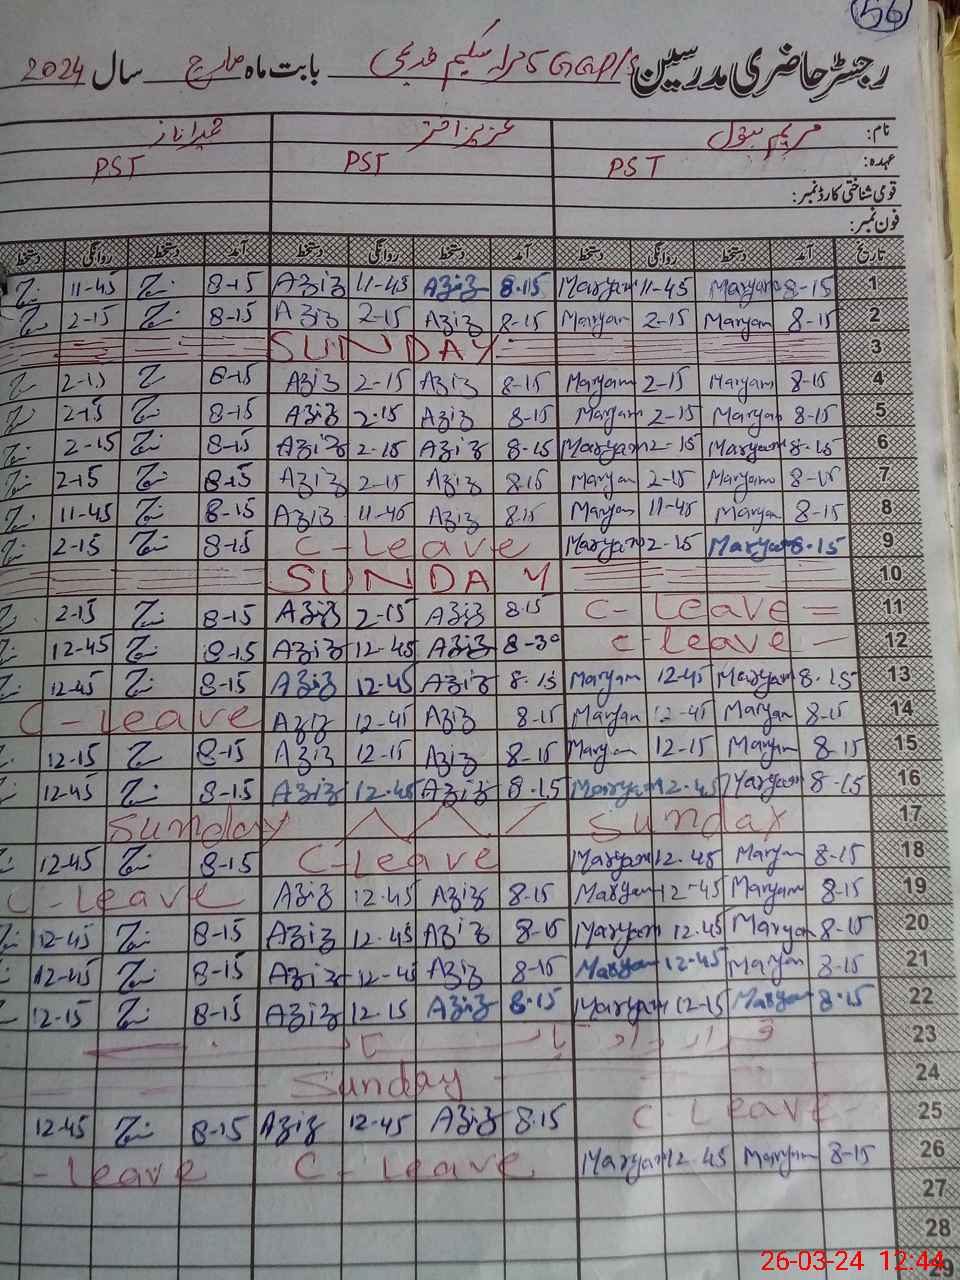 56
رجسٹر حاضری مدرسین GGP/S بابت ماہ مارچ سال 2024
نام: مریم بتول عزیز اختر
عہدہ: PST PST PST
قومی شناختی کارڈ نمبر:
فون نمبر:
تاریخ آمد دستخط روانگی دستخط آمد دستخط روانگی دستخط آمد دستخط روانگی دستخط
1 8-15 Maryam 11-45 Maryam 8-15 Aziz 11-45 Aziz 8-15 11-45
2 8-15 Maryam 2-15 Maryam 8-15 Aziz 2-15 Aziz 8-15 2-15
3 SUNDAY
4 8-15 Maryam 2-15 Maryam 8-15 Aziz 2-15 Aziz 8-15 2-15
5 8-15 Maryam 2-15 Maryam 8-15 Aziz 2-15 Aziz 8-15 2-15
6 8-15 Maryam 2-15 Maryam 8-15 Aziz 2-15 Aziz 8-15 2-15
7 8-15 Maryam 2-15 Maryam 8-15 Aziz 2-15 Aziz 8-15 2-15
8 8-15 Maryam 11-45 Maryam 8-15 Aziz 11-45 Aziz 8-15 11-45
9 8-15 Maryam 2-15 Maryam C-Leave 8-15 2-15
10 SUNDAY
11 C-Leave 8-15 Aziz 2-15 Aziz 8-15 2-15
12 C-Leave 8-30 Aziz 12-45 Aziz 8-15 12-45
13 8-15 Maryam 12-45 Maryam 8-15 Aziz 12-45 Aziz 8-15 12-45
14 8-15 Maryam 12-45 Maryam 8-15 Aziz 12-45 Aziz C-Leave
15 8-15 Maryam 12-15 Maryam 8-15 Aziz 12-15 Aziz 8-15 12-15
16 8-15 Maryam 12-45 Maryam 8-15 Aziz 12-45 Aziz 8-15 12-45
17 Sunday Sunday
18 8-15 Maryam 12-45 Maryam C-Leave 8-15 12-45
19 8-15 Maryam 12-45 Maryam 8-15 Aziz 12-45 Aziz C-Leave
20 8-15 Maryam 12-45 Maryam 8-15 Aziz 12-45 Aziz 8-15 12-45
21 8-15 Maryam 12-45 Maryam 8-15 Aziz 12-45 Aziz 8-15 12-45
22 8-15 Maryam 12-15 Maryam 8-15 Aziz 12-15 Aziz 8-15 12-15
23 قرارداد پاکستان
24 Sunday
25 C-Leave 8-15 Aziz 12-45 Aziz 8-15 12-45
26 8-15 Maryam 12-45 Maryam C-Leave -Leave
27
28
29
26-03-24 12:44